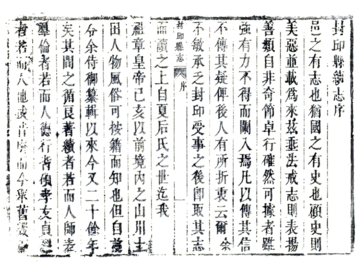 封印縣續志序
邑之有志也猶國之有史也顧史則
美惡並載爲來茲垂法戒志則表揚
善類自非奇節卓行確然可據者雖
強有力不得而闌入焉凡以傳其信
不傳其疑俾後人有所折衷云爾余
不敏承乏封印受事之後卽取其志
封印縣志 序
而讀之上自夏后氏之世迄我
聖章皇帝己亥以前境內之山川土
田人物風俗可按籍而知也但自黃
分余侍御纂輯以來今又二十餘年
矣其間之循良著績者若而人師表
羣倫者若而人德行者孝友貞
者若而人